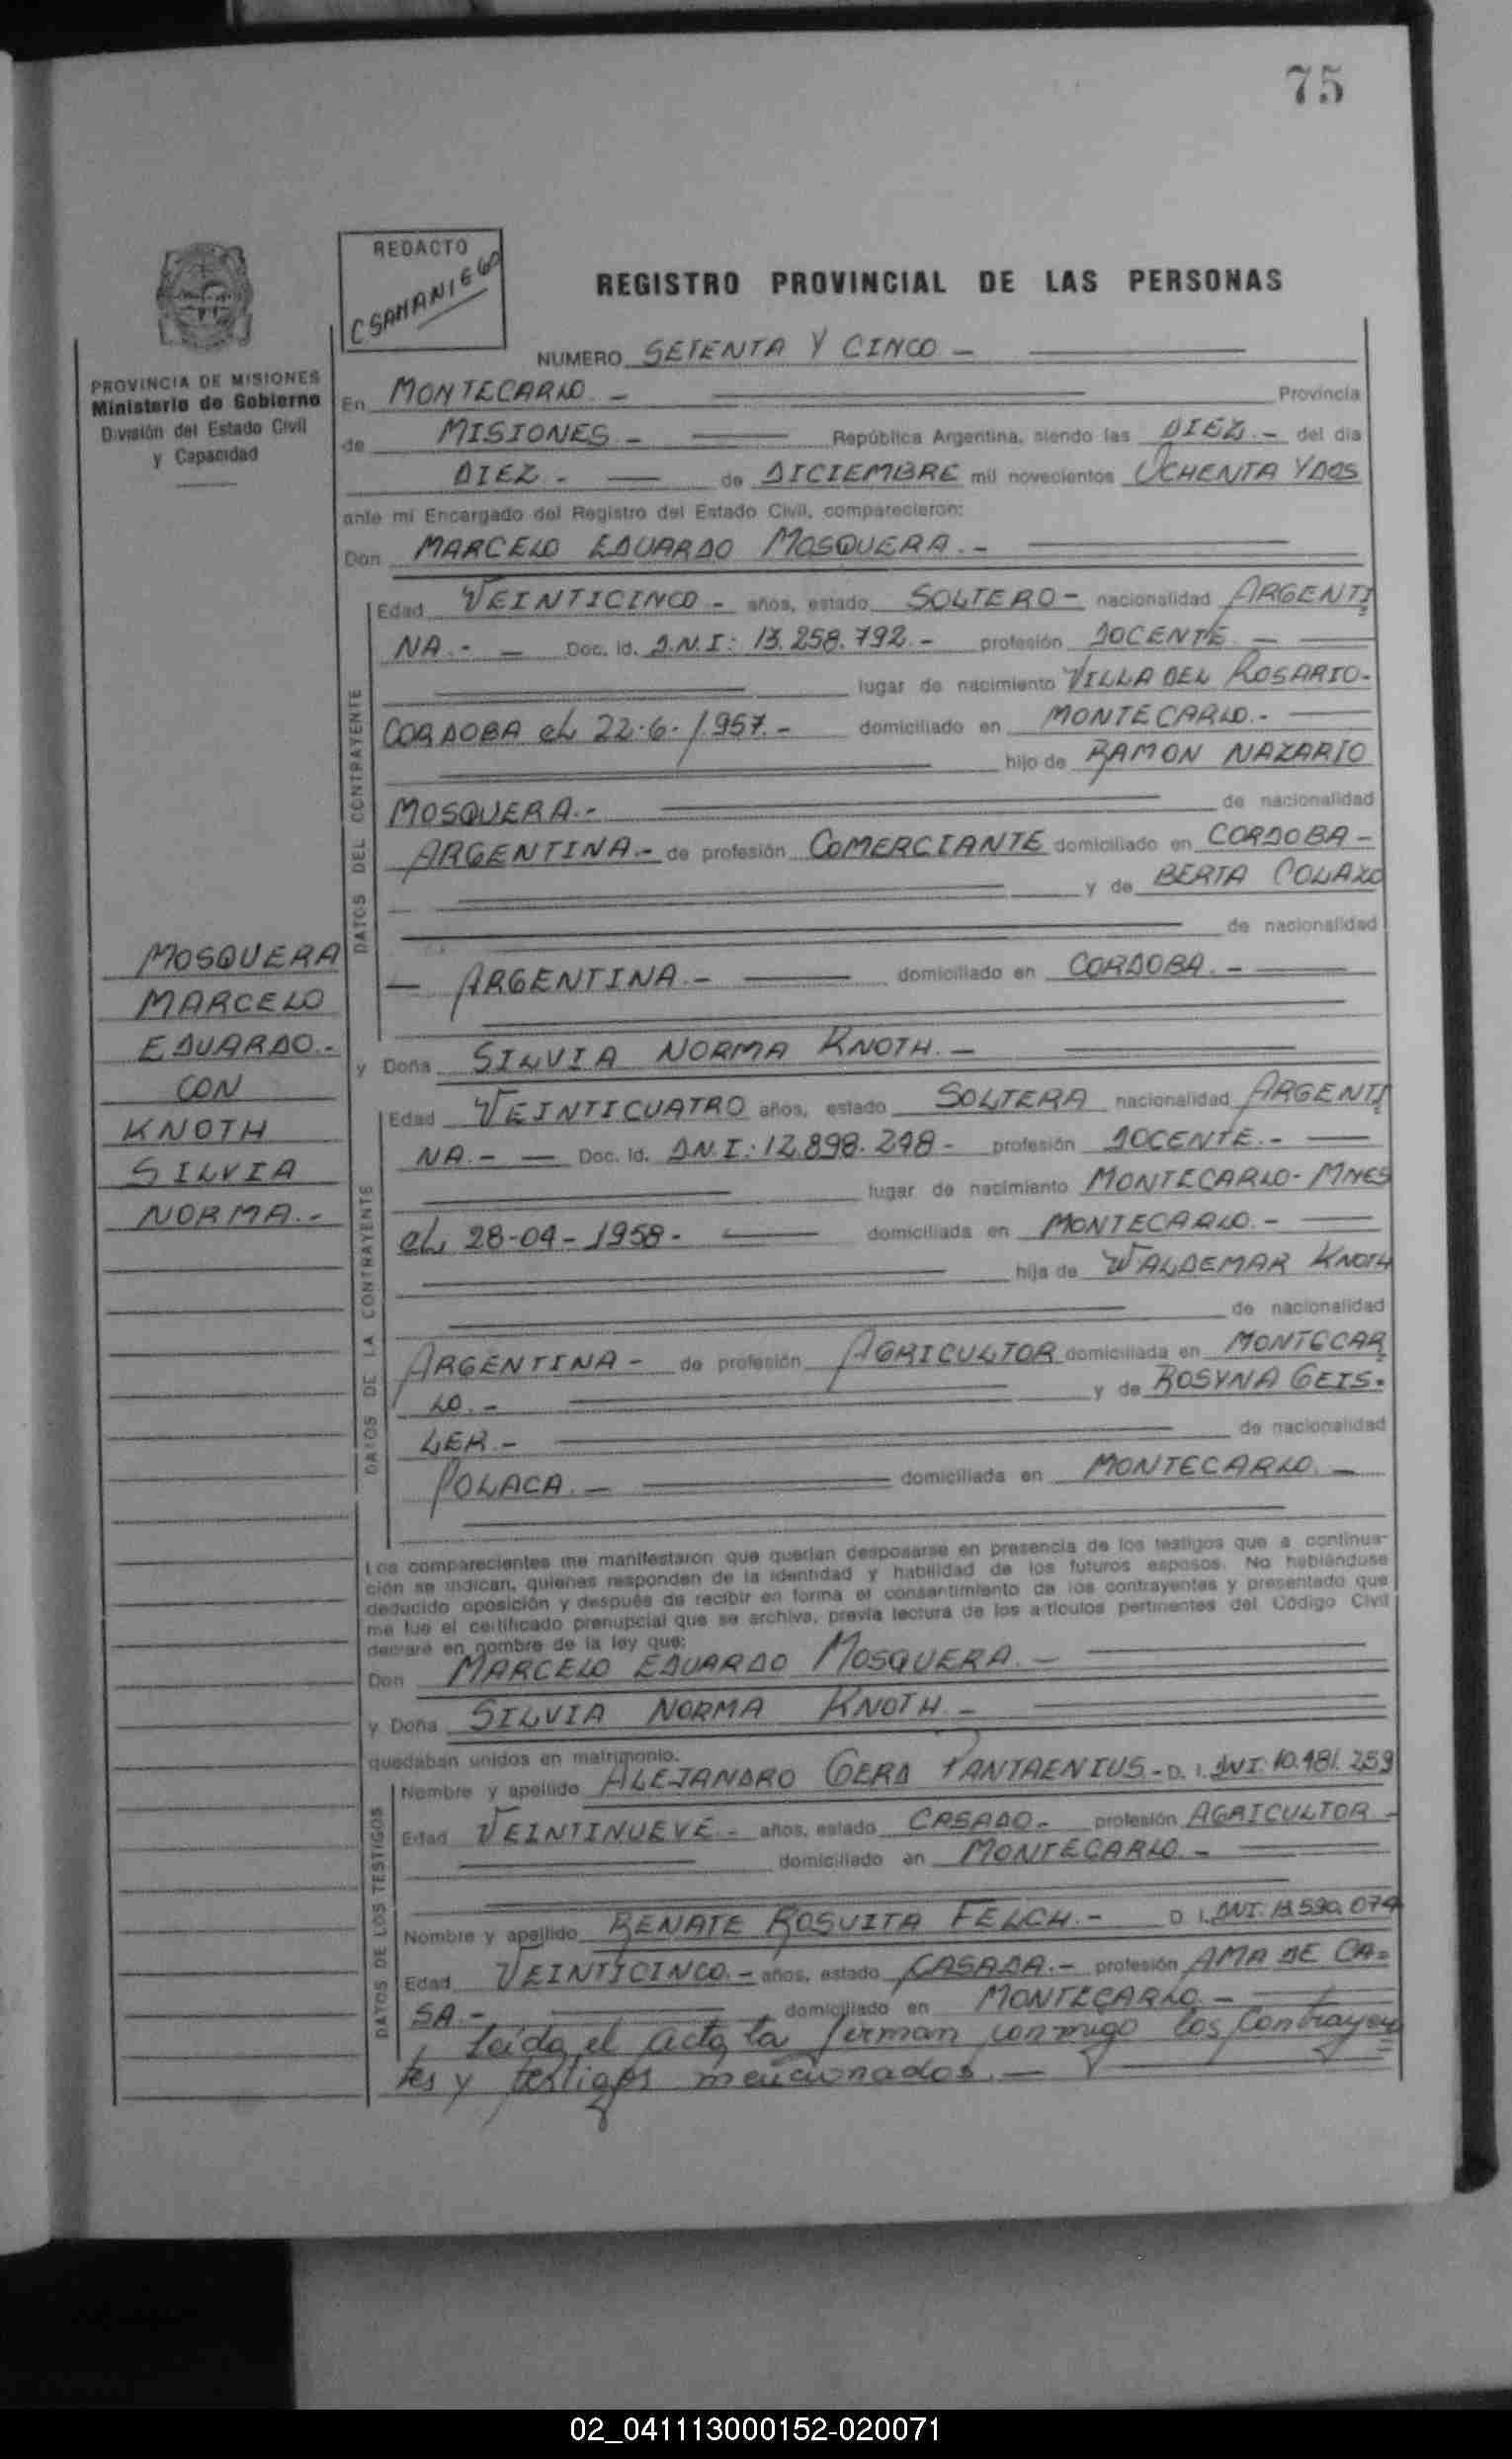 75
REDACTO
CSAMANIEGO
REGISTRO PROVINCIAL DE LAS PERSONAS
PROVINCIA DE MISIONES
Ministerio de Gobierno
División del Estado Civil
y Capacidad
NUMERO SETENTA Y CINCO -
En MONTECARLO.- Provincia
de MISIONES.- República Argentina, siendo las DIEZ.- del día
DIEZ.- de DICIEMBRE mil novecientos OCHENTA Y DOS
ante mi Encargado del Registro del Estado Civil, comparecieron:
Don MARCELO EDUARDO MOSQUERA.-
DATOS DEL CONTRAYENTE
Edad VEINTICINCO - años, estado SOLTERO - nacionalidad ARGENTI
NA.- - Doc. Id. D.N.I: 13.258.792.- profesión DOCENTE -
lugar de nacimiento VILLA DEL ROSARIO-
CORDOBA el 22-6-1957.- domiciliado en MONTECARLO.-
hijo de RAMON NAZARIO
MOSQUERA.- de nacionalidad
ARGENTINA.- de profesión COMERCIANTE domiciliado en CORDOBA -
y de BERTA COLAZO
de nacionalidad
- ARGENTINA.- domiciliado en CORDOBA.-
MOSQUERA
MARCELO
EDUARDO.-
CON
KNOTH
SILVIA
NORMA.-
y Doña SILVIA NORMA KNOTH.-
DATOS DE LA CONTRAYENTE
Edad VEINTICUATRO años, estado SOLTERA nacionalidad ARGENTI
NA.- - Doc. Id. D.N.I.: 12.898.248- profesión DOCENTE.-
lugar de nacimiento MONTECARLO-MNES
el 28-04-1958- domiciliada en MONTECARLO.-
hija de WALDEMAR KNOTH
de nacionalidad
ARGENTINA - de profesión AGRICULTOR domiciliada en MONTECAR
LO.- y de ROSYNA GEIS-
LER.- de nacionalidad
POLACA.- domiciliada en MONTECARLO.-
Los comparecientes me manifestaron que querían desposarse en presencia de los testigos que a continua-
ción se indican, quienes responden de la identidad y habilidad de los futuros esposos. No habiéndose
deducido oposición y después de recibir en forma el consentimiento de los contrayentes y presentado que
me fue el certificado prenupcial que se archiva, previa lectura de los artículos pertinentes del Código Civil
declaré en nombre de la ley que:
Don MARCELO EDUARDO MOSQUERA.-
y Doña SILVIA NORMA KNOTH.-
quedaban unidos en matrimonio.
DATOS DE LOS TESTIGOS
Nombre y apellido ALEJANDRO GERD PANTAENIUS - D. I. DNI: 10.481.259
Edad VEINTINUEVE - años, estado CASADO - profesión AGRICULTOR -
domiciliado en MONTECARLO -
Nombre y apellido RENATE ROSVITA FELCH.- D. I. DNI: 13.530.074
Edad VEINTICINCO.- años, estado CASADA.- profesión AMA DE CA-
SA.- domiciliado en MONTECARLO.-
Leída el acta la firman conmigo los contrayen
tes y testigos mencionados.-
02_041113000152-020071